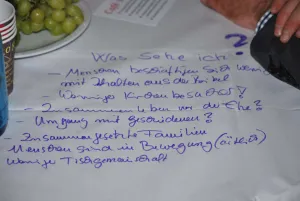 Was sehe ich?
- Menschen beschäftigen sich wenig
mit Inhalten aus der Bibel
- Weniger Kirchenbesuch!
- Zusammenleben vor der Ehe?
- Umgang mit geschiedenen?
- Zusammengesetzte Familien
Menschen sind in Bewegung
Wenige Tischgemeinschaft